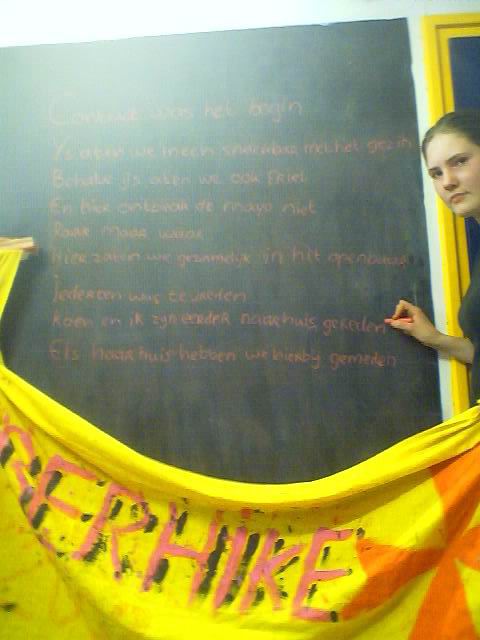 was het begin
IJs aten we in een snackbar met het gezin
Behalve ijs aten we ook friet
En hier ontbrak de mayo niet
Raar maar waar
Hier zaten we gezamelijk in hit openbaar
Iedereen was tevreden
Koen en ik zijn eerder naar huis gereden
Els haar huis hebben we hierbij gemeden
GERHIKE